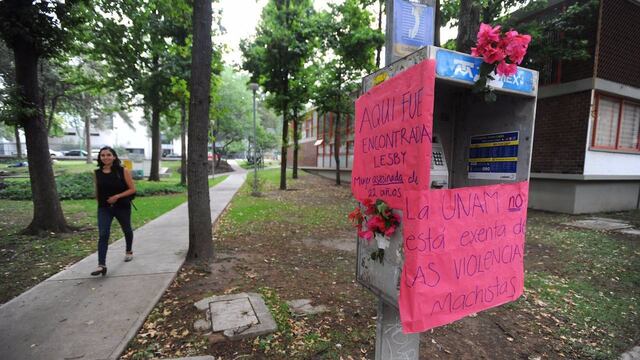 AQUI FUE
ENCONTRADA
LESBY
Mujer asesinada de
21 años
La UNAM no
está exenta de
LAS VIOLENCIAS
Machistas